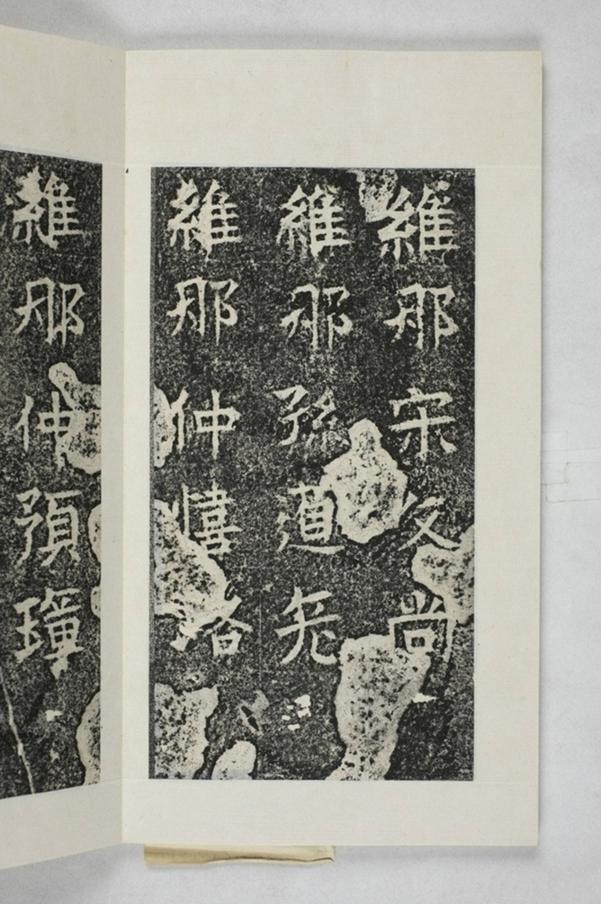 維那宋尚
維那孫道
維那仲憘路
維那仲預璋